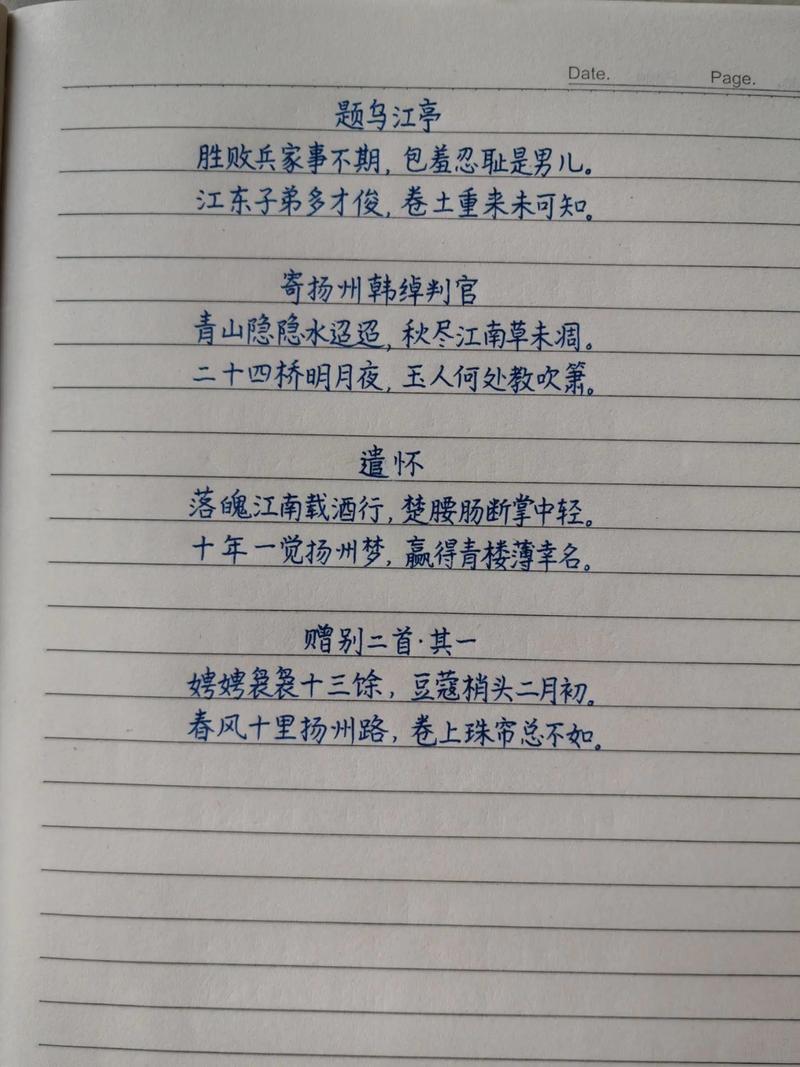 Date. Page.
题乌江亭
胜败兵家事不期，包羞忍耻是男儿。
江东子弟多才俊，卷土重来未可知。
寄扬州韩绰判官
青山隐隐水迢迢，秋尽江南草未凋。
二十四桥明月夜，玉人何处教吹箫。
遣怀
落魄江南载酒行，楚腰肠断掌中轻。
十年一觉扬州梦，赢得青楼薄幸名。
赠别二首·其一
娉娉袅袅十三馀，豆蔻梢头二月初。
春风十里扬州路，卷上珠帘总不如。